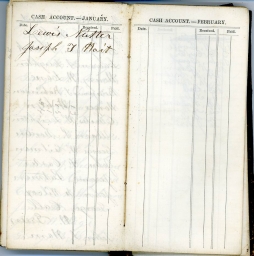 CASH ACCOUNT.—JANUARY.
Date. Received. Paid.
Lewis Nutter
Joseph T Wait
CASH ACCOUNT.—FEBRUARY.
Date. Received. Paid.